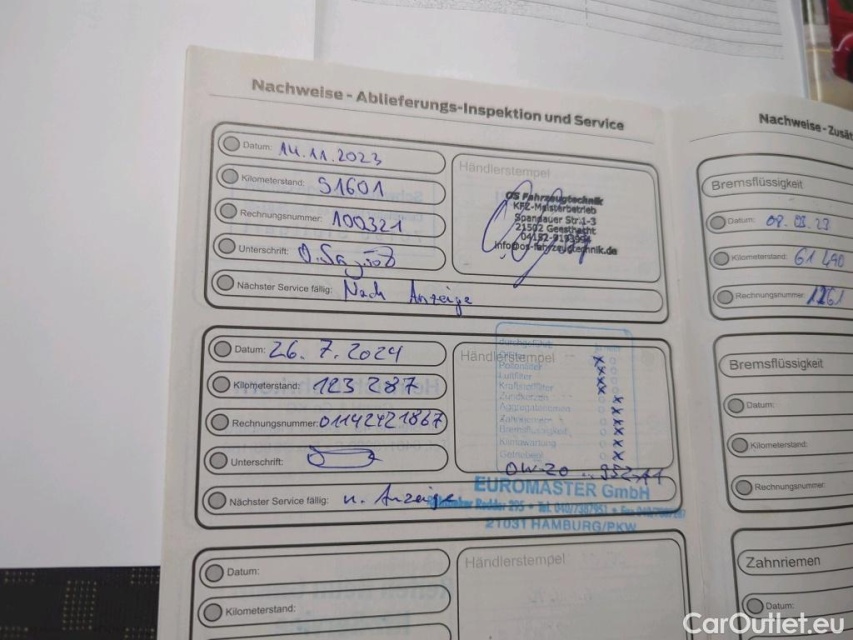 Nachweise - Ablieferungs-Inspektion und Service
Datum: 14.11.2023
Kilometerstand: 91601
Rechnungsnummer: 100321
Unterschrift:
Nächster Service fällig: Nach Anzeige
Händlerstempel
OS Fahrzeugtechnik
KFZ-Meisterbetrieb
Spandauer Str.1-3
21502 Geesthacht
info@os-fahrzeugtechnik.de
Datum: 26.7.2024
Kilometerstand: 123 287
Rechnungsnummer: 01142421867
Unterschrift:
Nächster Service fällig: n. Anzeige
Händlerstempel
Luftfilter
Kraftstofffilter
Zündkerzen
Bremsflüssigkeit
Klimawartung
0W-20
EUROMASTER GmbH
21031 HAMBURG/PKW
Datum:
Kilometerstand:
Händlerstempel
Nachweise - Zusät
Bremsflüssigkeit
Datum:
Kilometerstand:
Rechnungsnummer: 1261
Bremsflüssigkeit
Datum:
Kilometerstand:
Rechnungsnummer:
Zahnriemen
Datum:
CarOutlet.eu